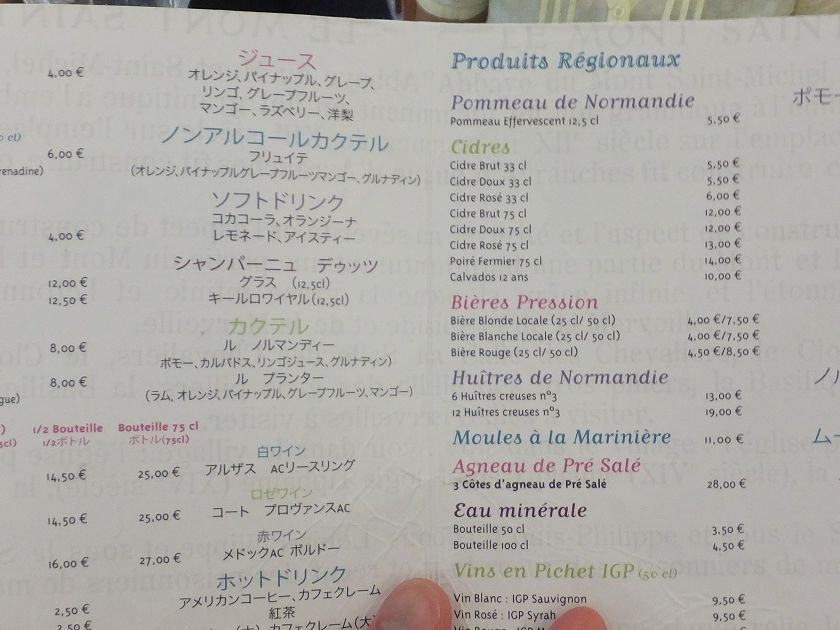 4,00 €
ジュース
オレンジ、パイナップル、グレープ、
リンゴ、グレープフルーツ、
マンゴー、ラズベリー、洋梨
cl)
6,00 €
renadine)
ノンアルコールカクテル
フリュイテ
(オレンジ、パイナップルグレープフルーツマンゴー、グルナディン)
ソフトドリンク
コカコーラ、オランジーナ
4,00 €
レモネード、アイスティー
シャンパーニュ デゥッツ
12,00 € グラス (12,5cl)
12,50 € キールロワイヤル(12,5cl)
カクテル
8,00 € ル ノルマンディー
ポモー、カルバドス、リンゴジュース、グルナディン)
8,00 € ル プランター
gue)
(ラム, オレンジ, パイナップル, グレープフルーツ, マンゴー)
1/2 Bouteille Bouteille 75 cl
5cl) 1/2ボトル ボトル(75cl)
白ワイン
14,50 € 25,00 € アルザス ACリースリング
ロゼワイン
14,50 € 25,00 € コート プロヴァンスAC
赤ワイン
16,00 € 27,00 € メドックAC ボルドー
ホットドリンク
2,50 € アメリカンコーヒー、カフェクレーム
紅茶
2,50 €
Produits Régionaux
Pommeau de Normandie
ポモー
Pommeau Effervescent 12,5 cl 5,50 €
Cidres
Cidre Brut 33 cl 5,50 €
Cidre Doux 33 cl 5,50 €
Cidre Rosé 33 cl 6,00 €
Cidre Brut 75 cl 12,00 €
Cidre Doux 75 cl 12,00 €
Cidre Rosé 75 cl 13,00 €
Poiré Fermier 75 cl 14,00 €
Calvados 12 ans 10,00 €
Bières Pression
Bière Blonde Locale (25 cl/ 50 cl) 4,00 €/7,50 €
Bière Blanche Locale (25 cl/ 50 cl) 4,00 €/7,50 €
Bière Rouge (25 cl/ 50 cl) 4,50 €/8,50 €
Huîtres de Normandie
ノル
6 Huîtres creuses n°3 13,00 €
12 Huîtres creuses n°3 19,00 €
Moules à la Marinière 11,00 €
ムー
Agneau de Pré Salé
3 Côtes d'agneau de Pré Salé 28,00 €
Eau minérale
Bouteille 50 cl 3,50 €
Bouteille 100 cl 4,50 €
Vins en Pichet IGP (50 cl)
Vin Blanc : IGP Sauvignon 9,50 €
Vin Rosé : IGP Syrah 9,50 €